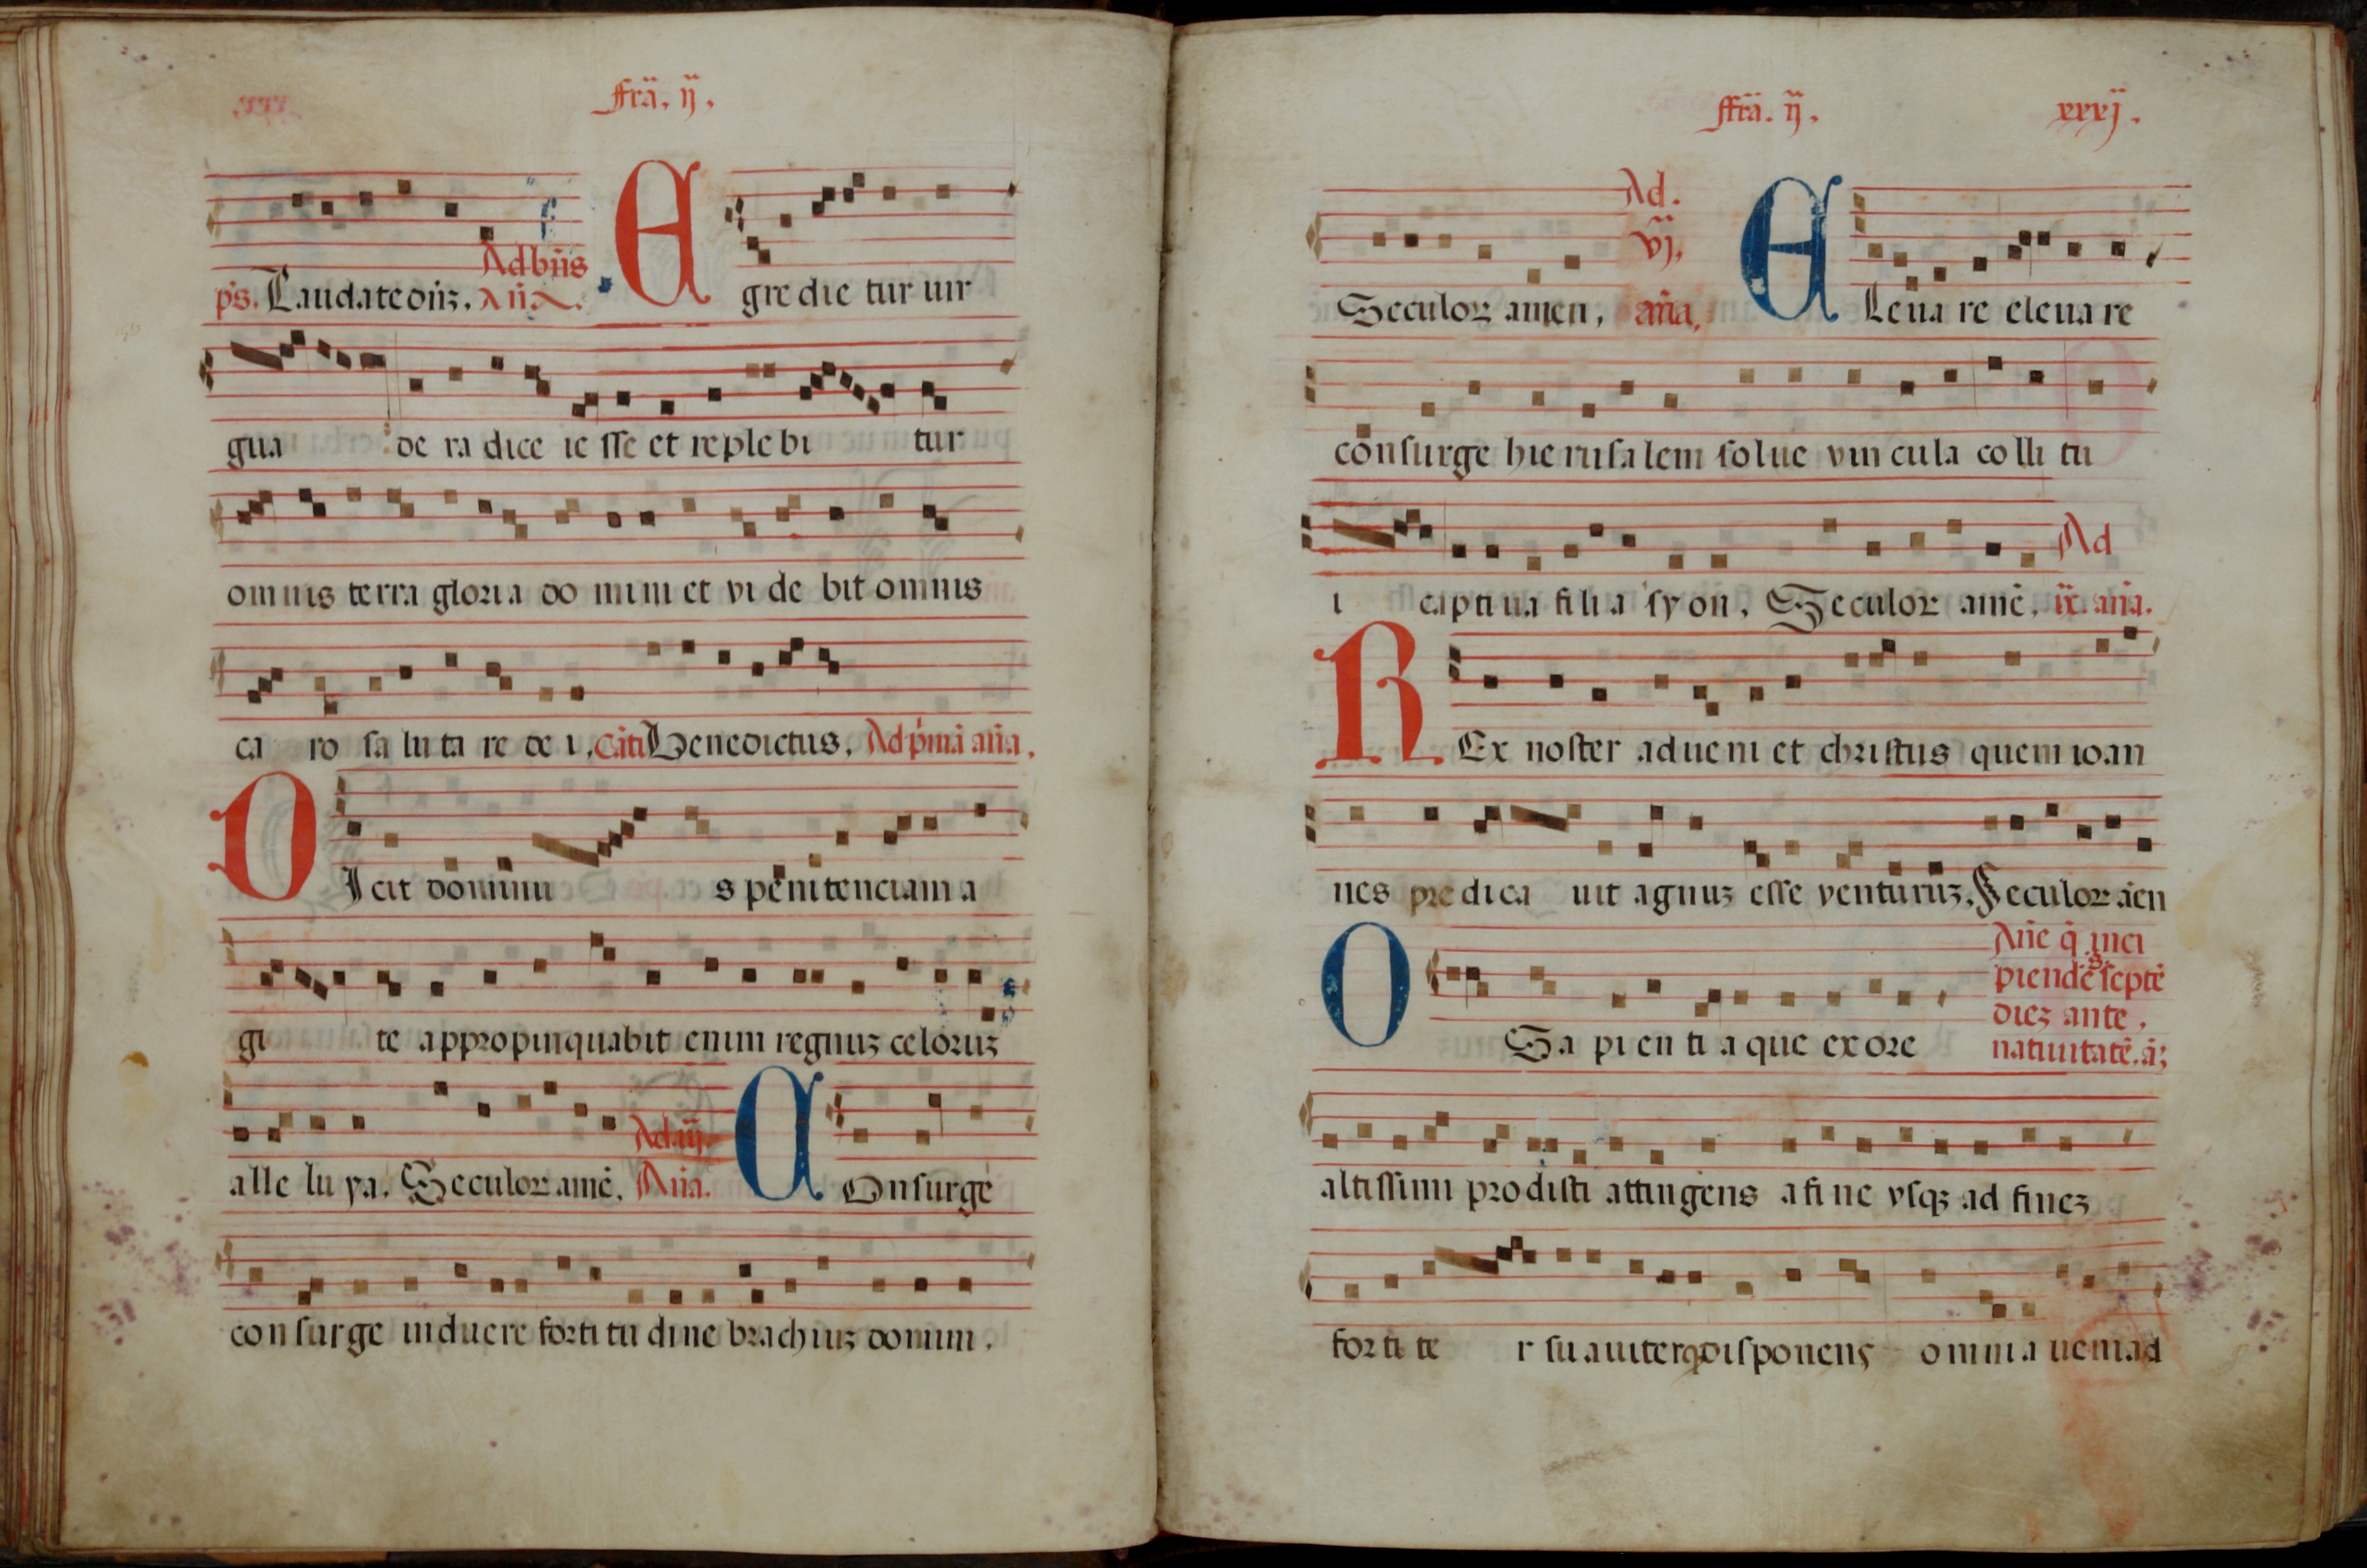 fra. ij.
Ad bñs
ps. Laudate oñz. aña. Egredietur uir
gua de radice iesse et replebitur
omnis terra gloria domini et videbit omnis
caro salutare dei. cãti Benedictus. Ad pmã aña.
DIcit dominus penitenciam a
gite appropinquabit enim regnuz celoruz
Ad iij.
alleluya. Seculor amẽ. Aña. COnsurge
consurge induere fortitudine brachiuz domini.
ffra. ij. xxxj.
Ad.
vj.
Seculor amen, aña, ELeuare eleuare
consurge hierusalem solue vincula colli tu
Ad
i captiua filia syon. Seculor amẽ. ix. aña.
REx noster adueni et christus quem ioan
nes predicauit agnuz esse venturuz. Seculor aẽn
Añe q̃ inci
piendẽ septẽ
diez ante.
O Sapientia que ex ore natiuitatẽ. a;
altissimi prodisti attingens a fine vsqz ad finez
fortiter suauiterqz disponens omnia ueni ad